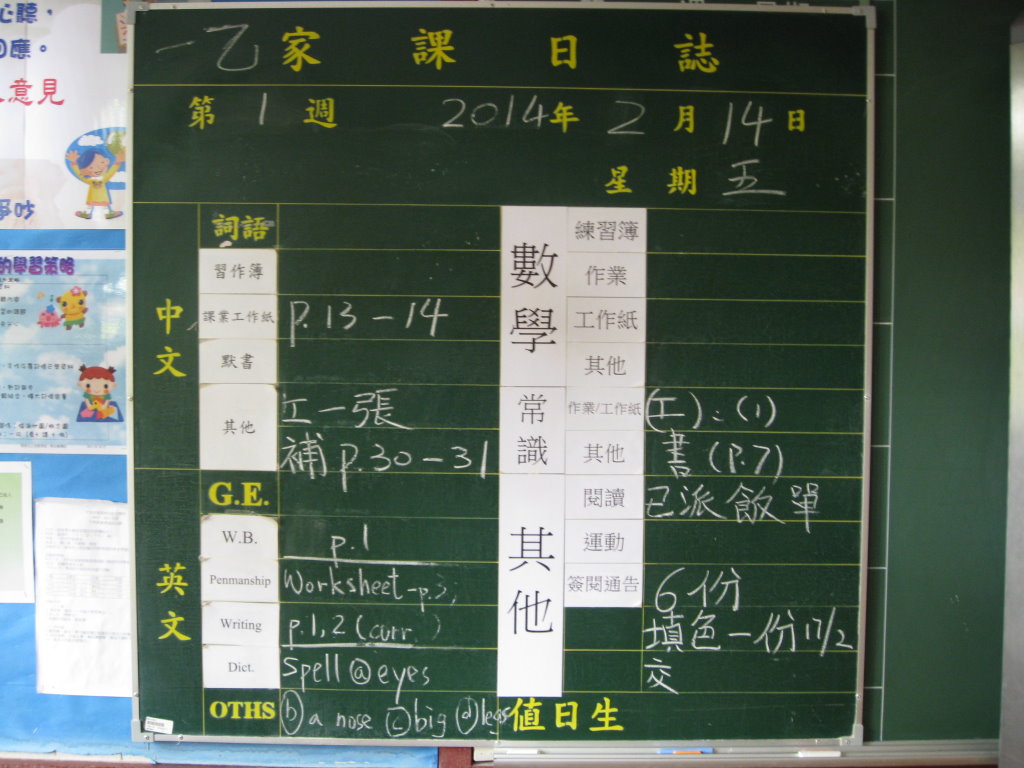 心聽，
回應。
意見
的學習策略
一乙家課日誌
第1週 2014年2月14日
星期五
中文
詞語
習作簿
課業工作紙 p.13-14
默書
其他 工一張
補 p.30-31
英文
G.E.
W.B. p.1
Penmanship Worksheet-p.3;
Writing p.1,2 (curr.)
Dict. Spell @ eyes
OTHS ⓑ a nose ⓒ big ⓓ legs
數學
練習簿
作業
工作紙
其他
常識
作業/工作紙 (工):(1)
其他 書 (P.7)
其他
閱讀 已派飯單
運動
簽閱通告 6份
填色一份 17/2
交
值日生